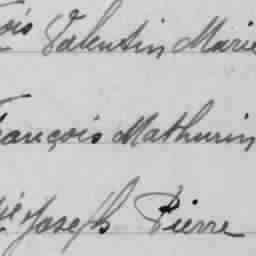 ois Valentin Marie
rançois Mathurin
ie Joseph Pierre